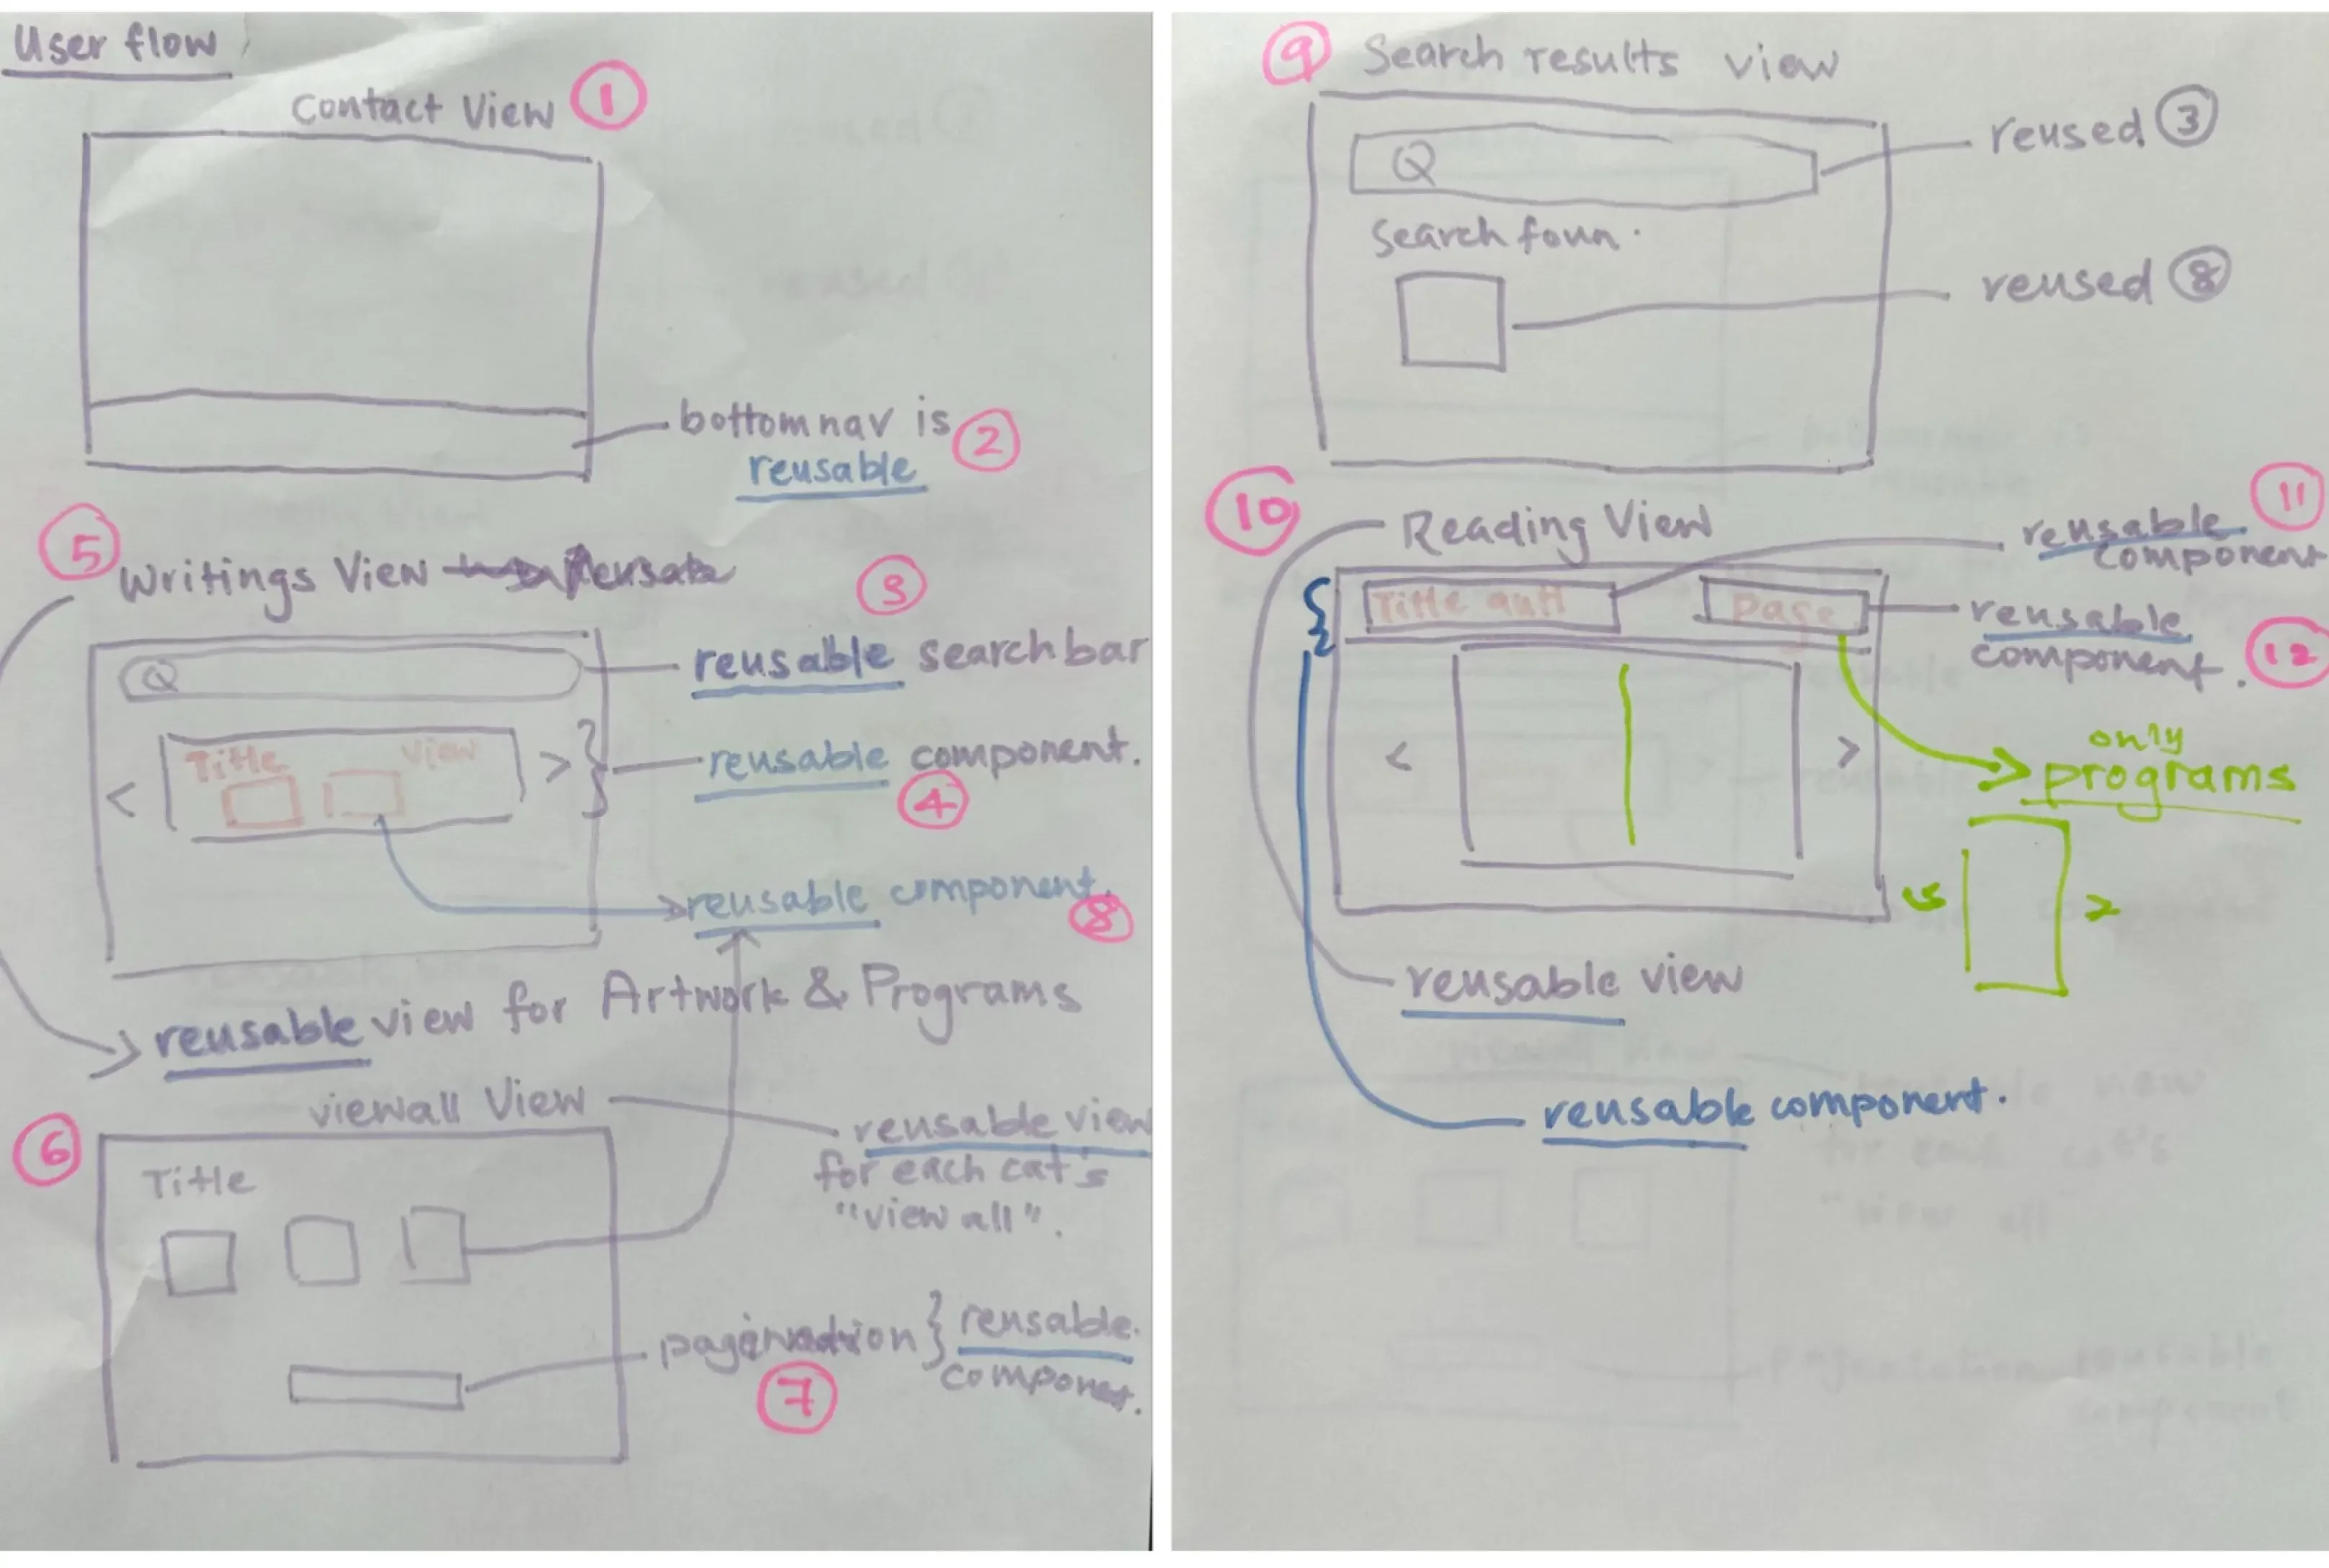 User flow
Contact View 1
bottomnav is 2
reusable
5 Writings View
3
reusable searchbar
Title View
reusable component.
4
reusable component.
8
reusable view for Artwork & Programs
viewall View
6
reusable view
for each cat's
"view all".
Title
reusable
component.
7
9 Search results view
reused 3
Search foun.
reused 8
10 Reading View
11
reusable
component
Title
page
reusable
component. 12
only
programs
reusable view
reusable component.